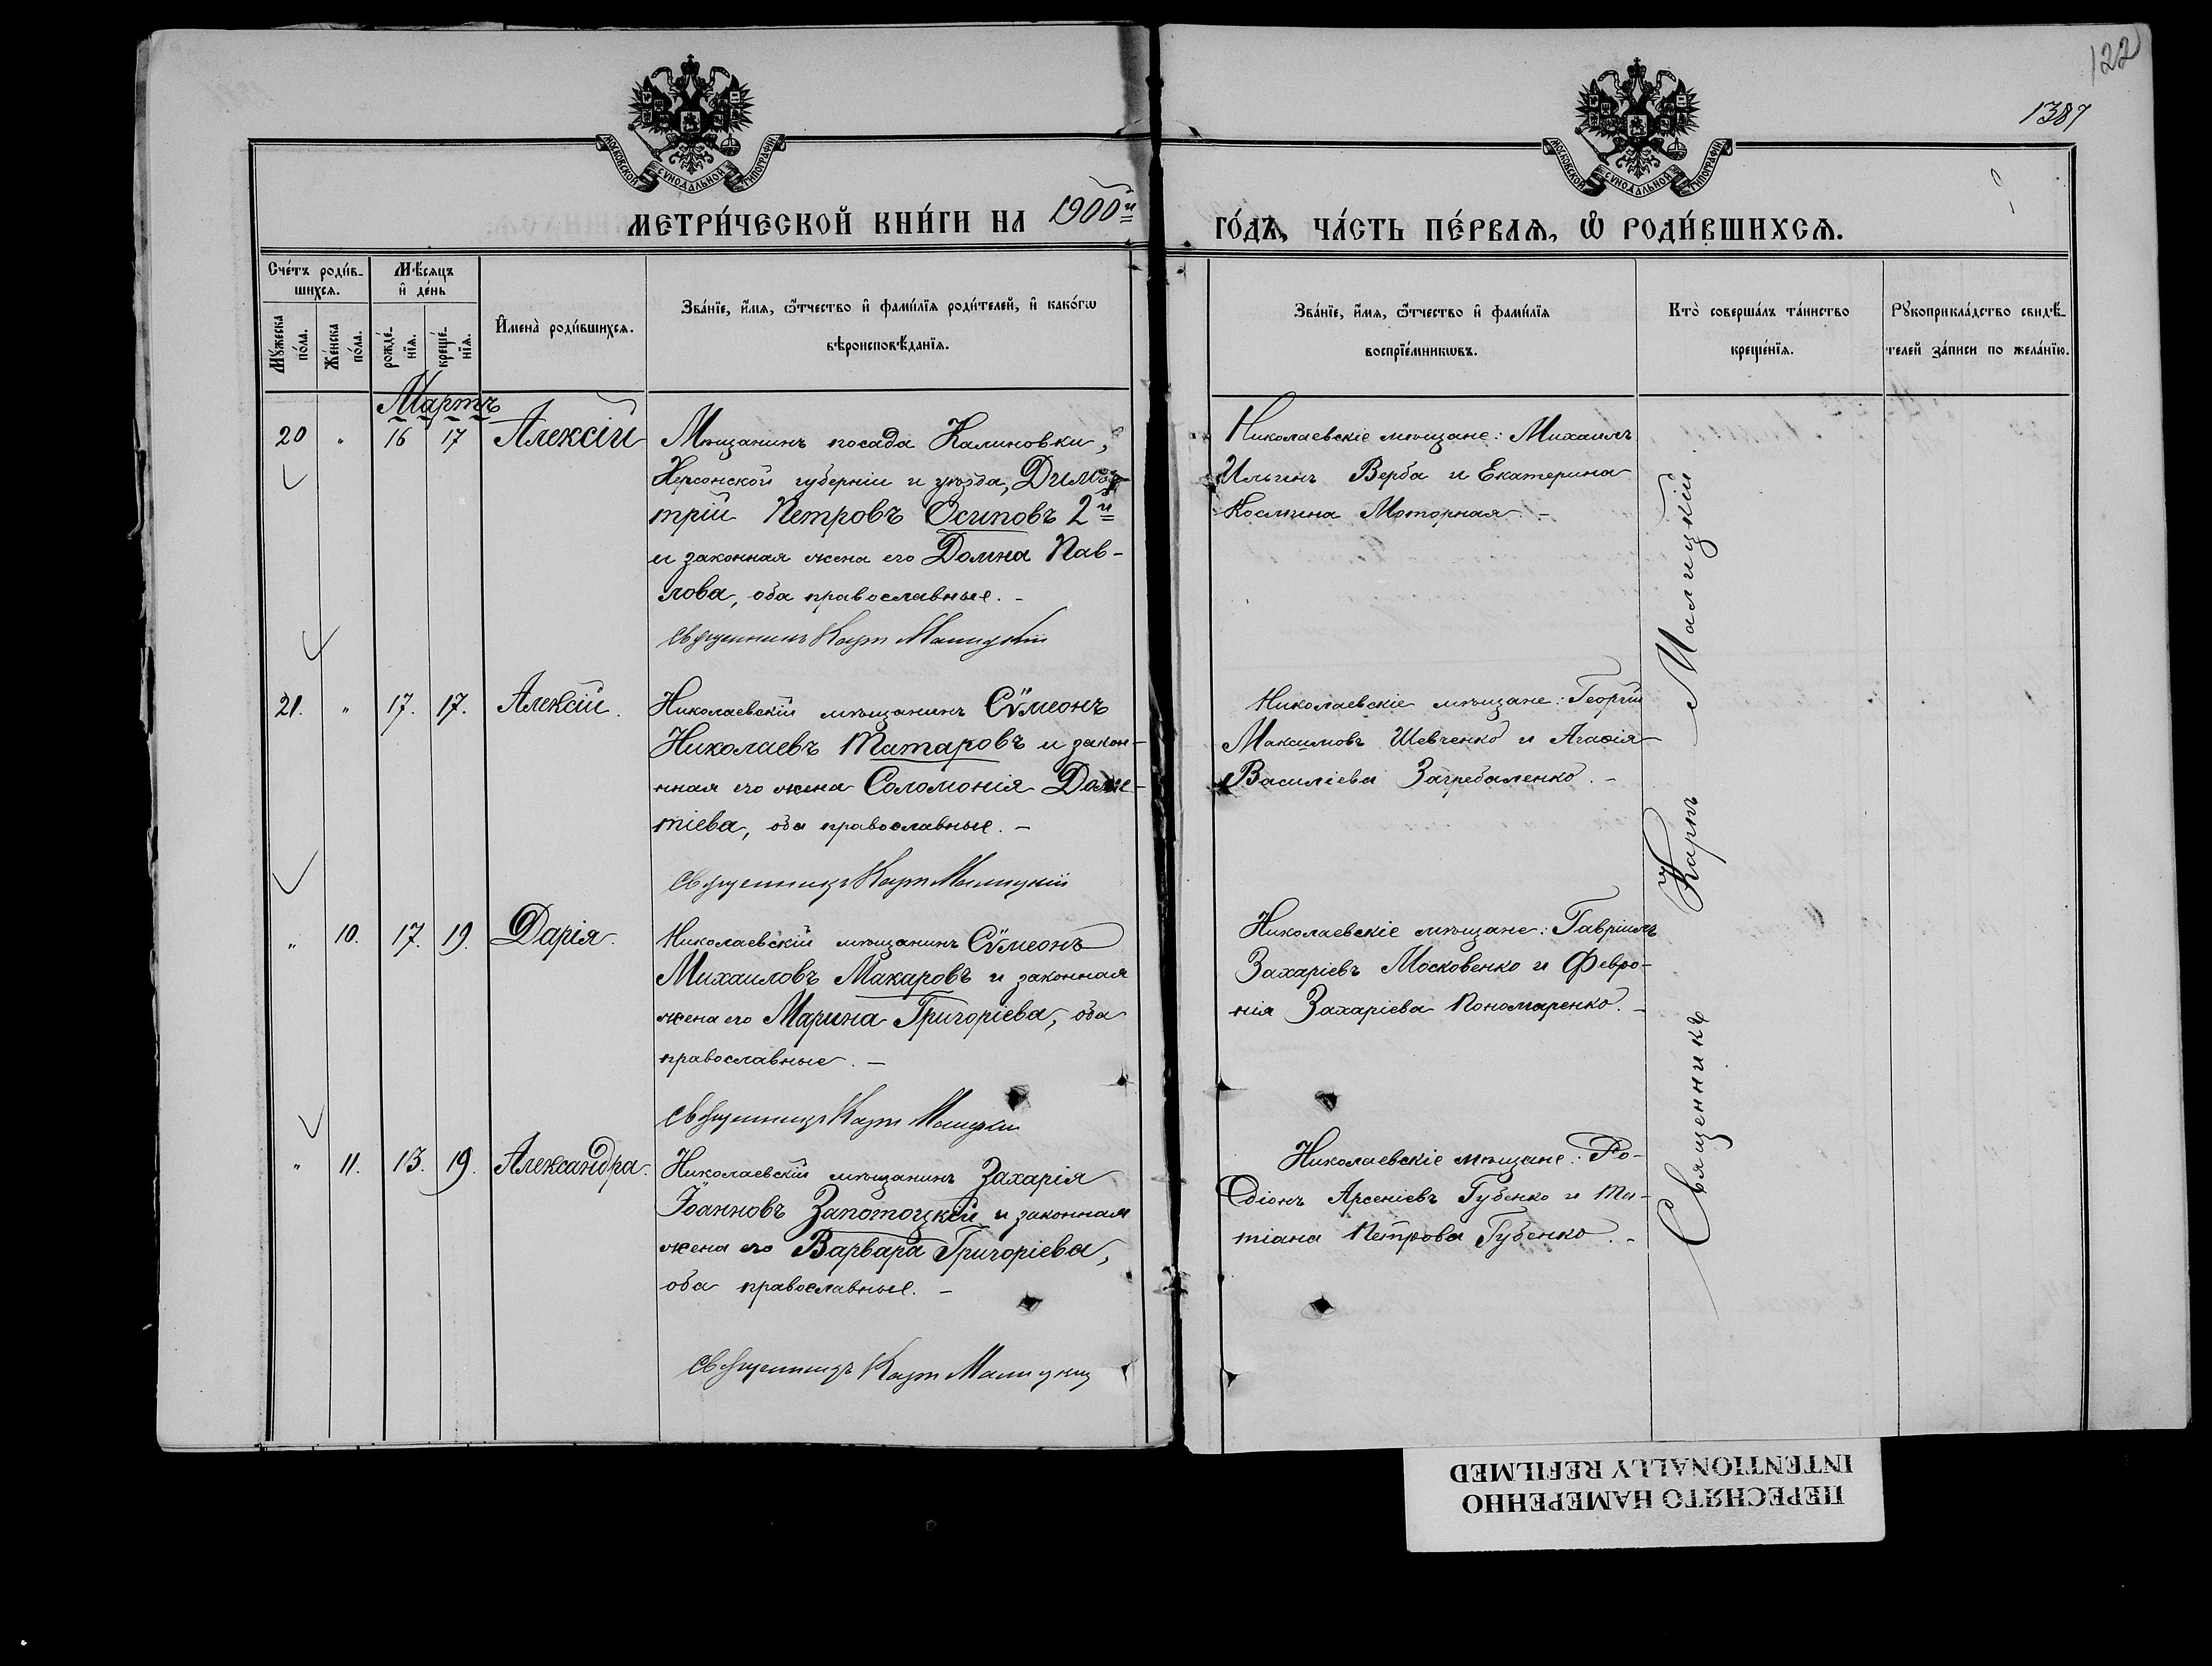 122
1387
МОСКОВСКОЙ СѴНОДАЛЬНОЙ ТИПОГРАФІИ
МОСКОВСКОЙ СѴНОДАЛЬНОЙ ТИПОГРАФІИ
МЕТРИ́ЧЕСКОЙ КНИ́ГИ НА 1900й
ГО́ДЪ, ЧА́СТЬ ПЕ́РВАѦ, Ѡ РОДИ́ВШИХСѦ.
Сче́тъ роди́в-
шихсѧ.
Мѣ́сѧцъ
и҆ де́нь
Мꙋ́жеска
по́ла.
Же́нска
по́ла.
рожде́-
нїѧ.
креще́-
нїѧ.
И҆мена̀ роди́вшихсѧ.
Зва́нїе, и҆́мѧ, ѻ҆́тчество и҆ фамѝлїѧ роди́телей, и҆ како́гѡ
вѣроисповѣ́данїѧ.
Зва́нїе, и҆́мѧ, ѻ҆́тчество и҆ фамѝлїѧ
воспрїе́мникѡвъ.
Кто̀ соверша́лъ та́инство
креще́нїѧ.
Рꙋкоприкла́дство свидѣ́-
телей за́писи по жела́нїю.
Мартъ
20 " 16 17 Алексій Мѣщанинъ посада Калиновки,
Херсонской губерніи и уѣзда, Дими-
трій Петровъ Осиповъ 2й
и законная жена его Домна Пав-
лова, оба православные. -
Священникъ Карпъ Малицкій
Николаевскіе мѣщане: Михаилъ
Ильинъ Верба и Екатерина
Космина Моторная. -
21. " 17. 17. Алексій. Николаевскій мѣщанинъ Сѵмеонъ
Николаевъ Татаровъ и закон-
ная его жена Соломонія Доме-
тіева, оба православные. -
Священникъ Карпъ Малицкій
Николаевскіе мѣщане: Георгій
Максимовъ Шевченко и Агаѳія
Василіева Загребаленко. -
" 10. 17. 19. Дарія. Николаевскій мѣщанинъ Сѵмеонъ
Михаиловъ Макаровъ и законная
жена его Марина Григоріева, оба
православные. -
Священникъ Карпъ Малицкій
Николаевскіе мѣщане: Гавріилъ
Захаріевъ Московенко и Февро-
нія Захаріева Пономаренко. -
" 11. 13. 19. Александра. Николаевскій мѣщанинъ Захарія
Іоанновъ Запотоцкій и законная
жена его Варвара Григоріева,
оба православные. -
Священникъ Карпъ Малицкій
Николаевскіе мѣщане: Ро-
діонъ Арсеніевъ Губенко и Та-
тіана Петрова Губенко. -
Священникъ Карпъ Малицкій.
ПЕРЕСНЯТО НАМЕРЕННО
INTENTIONALLY REFILMED